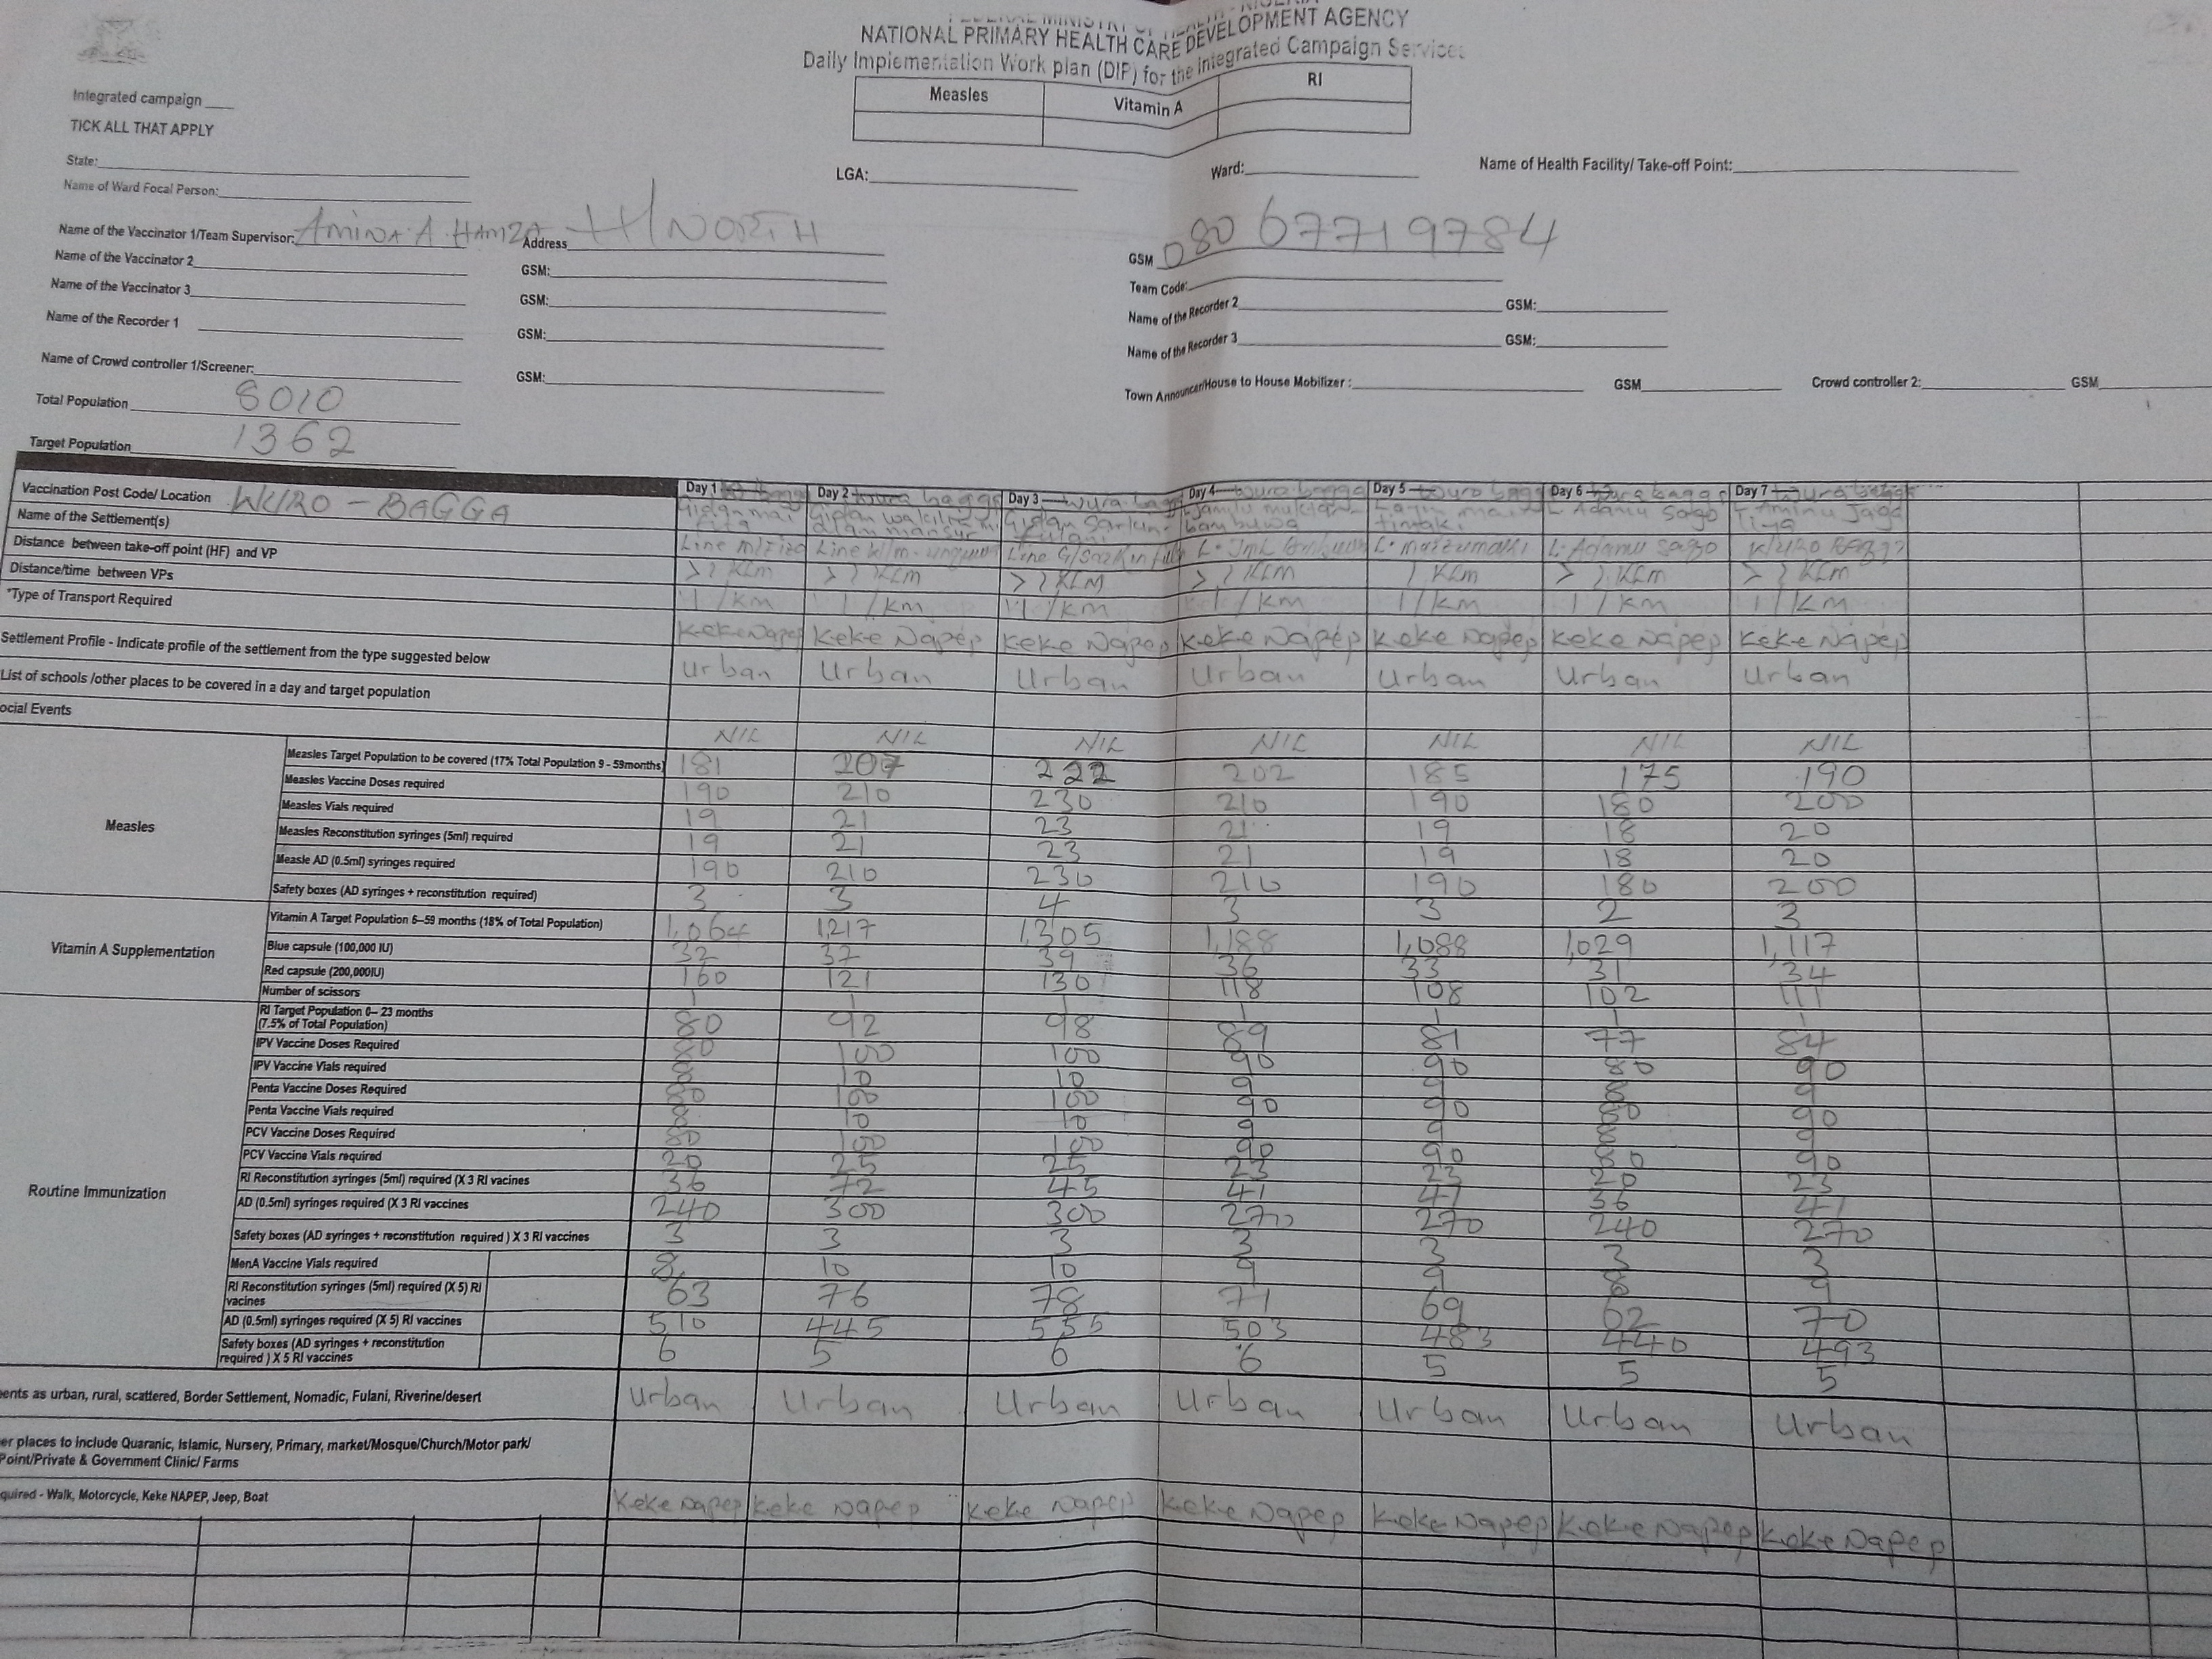 FEDERAL MINISTRY OF HEALTH - NIGERIA
NATIONAL PRIMARY HEALTH CARE DEVELOPMENT AGENCY
Daily Implementation Work plan (DIP) for the Integrated Campaign Services
Measles Vitamin A RI
Integrated campaign
TICK ALL THAT APPLY
State: LGA: Ward: Name of Health Facility/ Take-off Point:
Name of Ward Focal Person:
Name of the Vaccinator 1/Team Supervisor: AMINA A. HAMZA Address H/NORTH GSM 08067719784
Name of the Vaccinator 2 GSM: Team Code:
Name of the Vaccinator 3 GSM: Name of the Recorder 2 GSM:
Name of the Recorder 1 GSM: Name of the Recorder 3 GSM:
Name of Crowd controller 1/Screener: GSM: Town Announcer/House to House Mobilizer : GSM Crowd controller 2: GSM
Total Population 8010
Target Population 1362
Vaccination Post Code/ Location WURO - BAGGA Day 1 Day 2 wuro bagga Day 3 wuro bagga Day 4 wuro bagga Day 5 wuro bagga Day 6 wuro bagga Day 7 wuro bagga
Name of the Settlement(s) Gidan mai Gidan wakili Gidan Sarkin L. Adamu Sago L. Aminu Jaga
Distance between take-off point (HF) and VP L. Adamu Sago
Distance/time between VPs > 2 KLm > 2 KLm > 2 KLM > 2 KLm KLm > 2 KLm > 2 KLm
*Type of Transport Required 1/km 1/km 1/km 1/km 1/km 1/km 1/km
Keke Napep Keke Napep Keke Napep Keke Napep Keke Napep Keke Napep Keke Napep
Settlement Profile - Indicate profile of the settlement from the type suggested below
Urban Urban Urban Urban Urban Urban Urban
List of schools /other places to be covered in a day and target population
ocial Events
NIL NIL NIL NIL NIL NIL NIL
Measles
Measles Target Population to be covered (17% Total Population 9 - 59months) 181 207 222 202 185 175 190
Measles Vaccine Doses required 190 210 230 210 190 180 200
Measles Vials required 19 21 23 21 19 18 20
Measles Reconstitution syringes (5ml) required 19 21 23 21 19 18 20
Measle AD (0.5ml) syringes required 190 210 230 210 190 180 200
Safety boxes (AD syringes + reconstitution required) 3 3 4 3 3 2 3
Vitamin A Supplementation
Vitamin A Target Population 6–59 months (18% of Total Population) 1,064 1217 1,305 1,188 1,088 1,029 1,117
Blue capsule (100,000 IU) 32 37 39 36 33 31 34
Red capsule (200,000IU) 160 121 130 118 108 102 111
Number of scissors 1 1 1 1 1 1 1
Routine Immunization
RI Target Population 0– 23 months
(7.5% of Total Population) 80 92 98 89 81 77 84
IPV Vaccine Doses Required 80 100 100 90 90 80 90
IPV Vaccine Vials required 8 10 10 9 9 8 9
Penta Vaccine Doses Required 80 100 100 90 90 80 90
Penta Vaccine Vials required 8 10 10 9 9 8 9
PCV Vaccine Doses Required 80 100 100 90 90 80 90
PCV Vaccine Vials required 20 25 25 23 23 20 23
RI Reconstitution syringes (5ml) required (X 3 RI vacines 36 72 45 41 41 36 41
AD (0.5ml) syringes required (X 3 RI vaccines 240 300 300 270 270 240 270
Safety boxes (AD syringes + reconstitution required ) X 3 RI vaccines 3 3 3 3 3 3 3
MenA Vaccine Vials required 8 10 10 9 9 8 9
RI Reconstitution syringes (5ml) required (X 5) RI
vacines 63 76 78 71 69 62 70
AD (0.5ml) syringes required (X 5) RI vaccines 510 445 555 503 483 440 493
Safety boxes (AD syringes + reconstitution
required ) X 5 RI vaccines 6 5 6 6 5 5 5
ents as urban, rural, scattered, Border Settlement, Nomadic, Fulani, Riverine/desert Urban Urban Urban Urban Urban Urban Urban
er places to include Quaranic, Islamic, Nursery, Primary, market/Mosque/Church/Motor park/
Point/Private & Government Clinic/ Farms
quired - Walk, Motorcycle, Keke NAPEP, Jeep, Boat Keke Napep Keke Napep Keke Napep Keke Napep Keke Napep Keke Napep Keke Napep